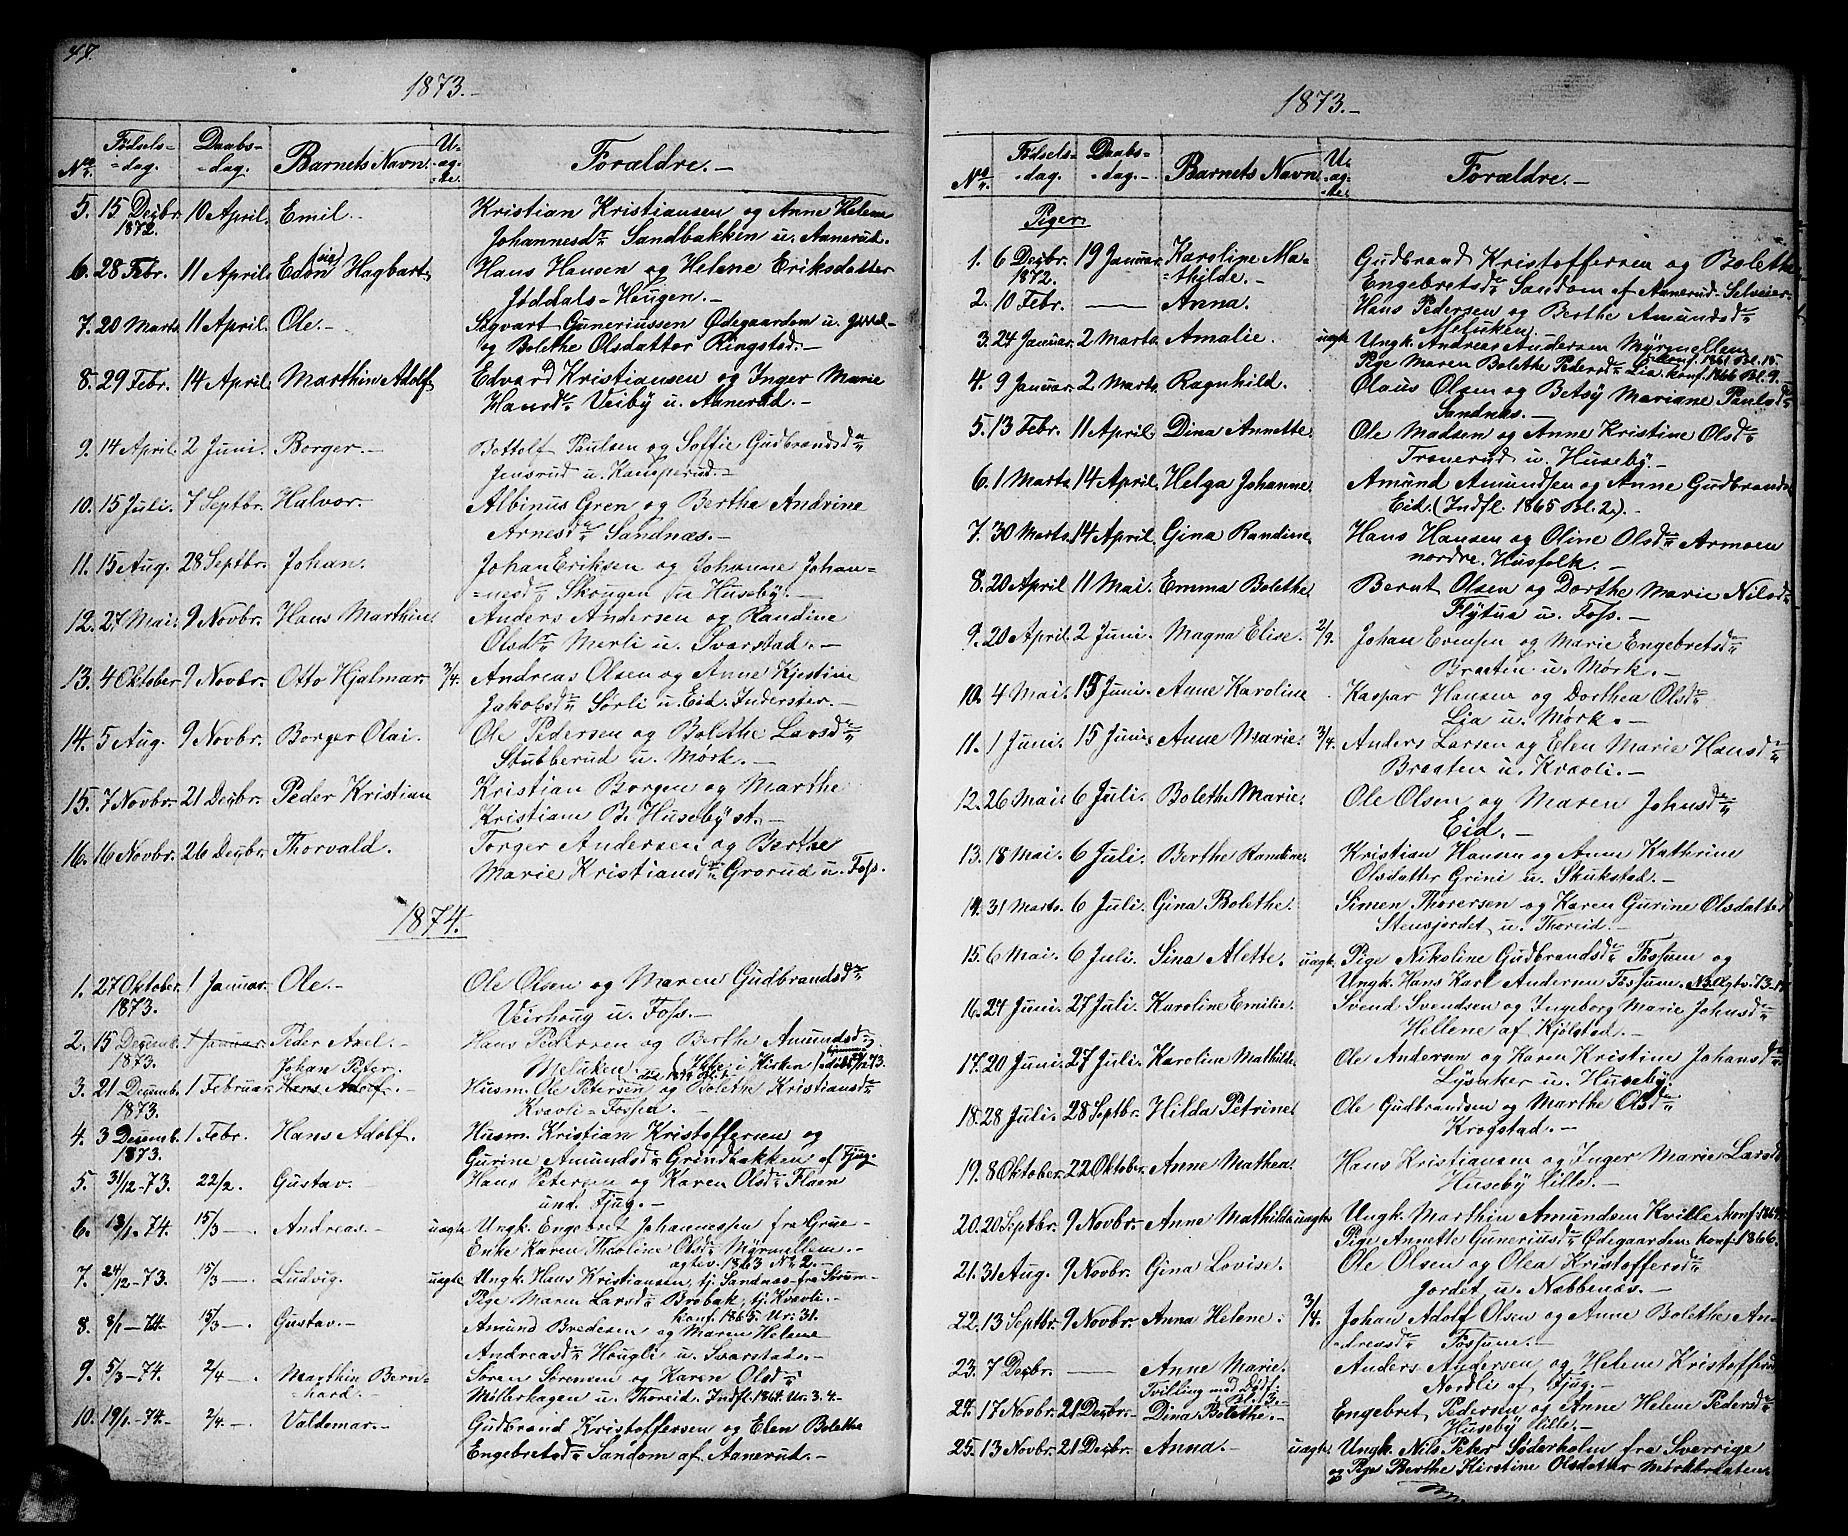 47.
1873.-
No Fødsels-dag. Daabs-dag. Barnets Navn. U-ag-te. Forældre.-
5. 15 Decbr. 10 April. Emil.- Kristian Kristiansen og Anne Helene
1872. Johannesdtr Sandbakken u. Aanerud.
6. 28 Febr. 11 April. Edvin Hagbart. Hans Hansen og Helene Eriksdatter
Jøddals-Heugen.-
7. 20 Marts 11 April. Ole.- Sigvart Guneriussen Ødegaarden u.
og Bolethe Olsdatter Ringstad.-
8. 29 Febr. 14 April. Marthin Adolf Edvard Kristiansen og Inger Marie
Hansdtr Veiby u. Aanerud.-
9. 14 April. 2 Juni. Borger.- Bottolf Paulsen og Soffie Gudbrandsdtr
Jensrud u. Kamperud.-
10. 15 Juli. 7 Septbr. Halvor. Albinus Gren og Berthe Andrine
Arnesdtr Sandnæs.-
11. 15 Aug. 28 Septbr. Johan. Johan Eriksen og Johanne Johan=
=nesdtr Skougen u Huseby.-
12. 27 Mai. 9 Novbr. Hans Marthin. Anders Andersen og Randine
Olsdtr Merli u. Svarstad.-
13. 4 Oktober 9 Novbr. Otto Hjalmar. 3/4. Andreas Olsen og Anne Kjestine
Jakobsdtr Sørli u. Eid. Inderster.-
14. 5 Aug. 9 Novbr. Borger Olai. Ole Pedersen og Bolethe Larsdtr
Stubberud u. Mørk.-
15. 7 Novbr. 21 Decbr. Peder Kristian Kristian Borgen og Marthe
Kristians B. Huseby st.-
16. 16 Novbr. 26 Decbr. Thorvald. Torger Andersen og Berthe
Marie Kristiansdtr Grorud u. Foss.
1874.
1. 27 Oktober. 1 Januar. Ole.- Ole Olsen og Maren Gudbrandsdtr
1873. Veirhoug u. Foss.-
2. 15 Decemb. 1 Januar. Peder Axel.- Hans Pedersen og Berthe Amundsdtr
1873. Meluken. Ikke i Kirken
Johan Peter.
3. 21 Decemb. 1 Februar. Hans Adolf.- Husm. Ole Petersen og Bolethe Kristiansdtr
1873. Kraoli-Fossed.-
4. 3 Decemb. 1 Febr. Hans Adolf. Husm. Kristian Kristoffersen og
1873. Gurine Amundsdtr Grindbakken af Fjug.
5. 31/12-73. 22/2. Gustav.- Hans Petersen og Karen Olsdtr Flaen
und. Fjug.-
6. 13/1-74. 15/3-. Andreas.- uagte Ungk. Engebret Johannessen fra Grue-
Enke Karen Theoline Olsdtr Myrmellem.-
7. 24/12-73. 15/3-. Ludvig. uagte Ungk. Hans Kristiansen, tj. Sandnæs-fra Strøm-
agtev. 1863 No 2.-
Pige Maren Larsdtr Brobak, tj. Kraoli.-
Konf. 1865. Nr. 31.
8. 8/1-74. 15/3-. Gustav.- Amund Bredesen og Maren Helene
Andreasdtr Hougli u. Svarstad.-
9. 5/3-74. 2/4-. Marthin Bern- Søren Sørensen og Karen Olsdtr
=hard. Møllerhagen u. Thoreid. Indfl. 1864. Nr. 3.4.-
10. 19/1-74.- 2/4-. Valdemar.- Gudbrand Kristoffersen og Elen Bolethe
Engebretsdtr Sandom af Aanerud.-
1873.-
No Fødsels-dag. Daabs-dag. Barnets Navn U-ag-te. Forældre.-
Piger.
1. 6 Decbr. 19 Januar. Karoline Ma- Gudbrand Kristoffersen og Bolethe
1872. =thilde.- Engebretsdtr Sandom af Aanerud-Selveier-
2. 10 Febr. — Anna. Hans Pedersen og Berthe Amundsdtr
Meluken.
3. 24 Januar. 2 Marts. Amalie. uagte Ungk. Andreas Andersen Myrmellem
Konf. 1861 Bl. 15.
Pige Maren Bolethe Pedersdtr Lia. konf. 1866 Bl. 9.
4. 9 Januar. 2 Marts. Ragnhild. Olaus Olsen og Betsy Mariane Paulsdtr
Sandnæs.-
5. 13 Febr. 11 April. Dina Annette. Ole Madsen og Anne Kristine Olsdtr
Tronerud u. Huseby.-
6. 1 Marts 14 April. Helga Johanne. Amund Amundsen og Anne Gudbrandsd
Eid. (Indfl. 1865 Bl. 2).-
7. 30 Marts. 14 April. Gina Randine. Hans Hansen og Oline Olsdtr Armoen
nordre. Husfolk.-
8. 20 April 11 Mai. Emma Bolethe Bernt Olsen og Dorthe Marie Nilsdtr
Flytua u. Foss.-
9. 20 April. 2 Juni. Magna Elise. 2/9. Johan Evensen og Marie Engebretsdtr
Braaten u. Mørk.-
10. 4 Mai. 15 Juni. Anne Karoline Kaspar Hansen og Dorthea Olsdtr
Lia u. Mørk.-
11. 1 Juni. 15 Juni. Anne Marie. 3/4. Anders Larsen og Elen Marie Hansdtr
Braaten u. Kraoli.-
12. 26 Mai. 6 Juli. Bolethe Marie. Ole Olsen og Maren Johnsdtr
Eid.-
13. 18 Mai. 6 Juli. Berthe Randine. Kristian Hansen og Anne Kathrine
Olsdatter Grini u. Skukstad.-
14. 31 Marts. 6 Juli. Gina Bolethe. Simen Thorersen og Karen Gurine Olsdatter
Stensjordet u. Thoreid.-
15. 6 Mai. 6 Juli. Sina Alette. uagte. Pige Nikoline Gudbrandsdtr Fossum og
Ungk. Hans Karl Andersen Fossum.
16. 24 Juni. 27 Juli. Karoline Emilie. Svend Svendsen og Ingeborg Marie Johnsdtr
Hillene af Kjølstad.-
17. 20 Juni. 27 Juli. Karoline Mathilde. Ole Andersen og Karen Kristine Johansdtr
Lysaker u. Huseby.
18. 28 Juli. 28 Septbr. Hilda Petrine. Ole Gudbrandsen og Marthe Olsdtr
Krogstad.-
19. 8 Oktober. 22 Oktober. Anne Mathea. Hans Kristiansen og Inger Marie Larsd
Huseby Hille.-
20. 20 Septbr. 9 Novbr. Anne Mathilde uagte Ungk. Marthin Amundsen Kville. konf. 1864.
Pige Annette Guneriusdtr Ødegaarden konf. 1866.
21. 31 Aug. 9 Novbr. Gina Lovise. Ole Olsen og Olea Kristoffersdtr
Jordet u. Nabbenæs.-
22. 13 Septbr. 9 Novbr. Anna Helene. 3/4. Johan Adolf Olsen og Anne Bolethe An-
=dreasdtr Fossum.-
23. 7 Decbr. — Anne Marie. Anders Andersen og Helene Kristoffersd
Tvilling med Dødf. Nordli af Fjug.-
24. 17 Novbr. 21 Decbr. Dina Bolethe.- Engebret Pedersen og Anne Helene Pedersdtr
Huseby Hille.-
25. 13 Novbr. 21 Decbr. Anna.- uagte Ungk. Nils Peter Søderholm fra Sverrige
og Pige Berthe Kirstine Olsdatter Mørkbraaten